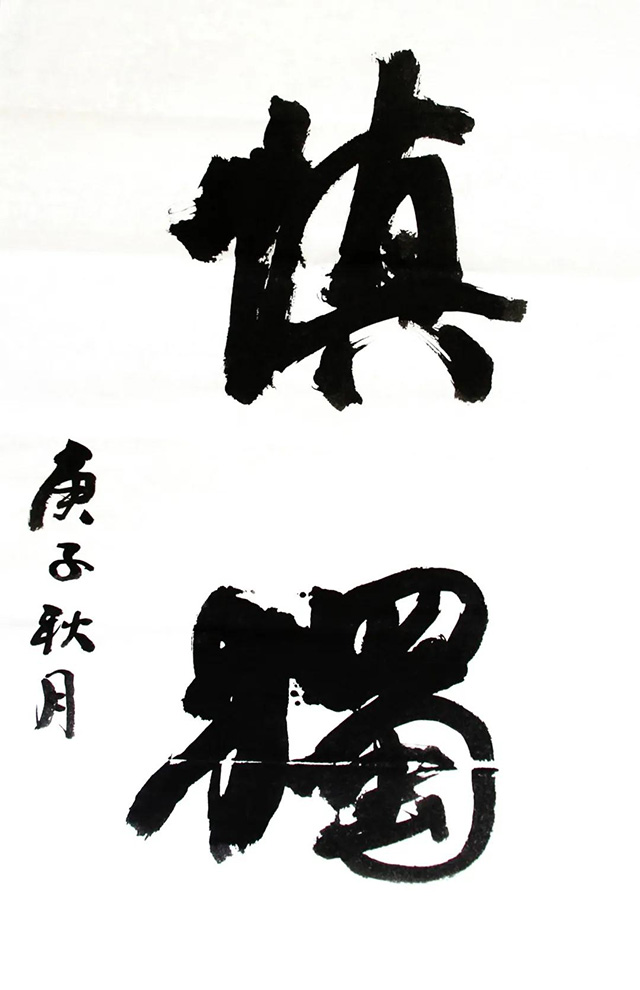 慎獨
庚子秋月